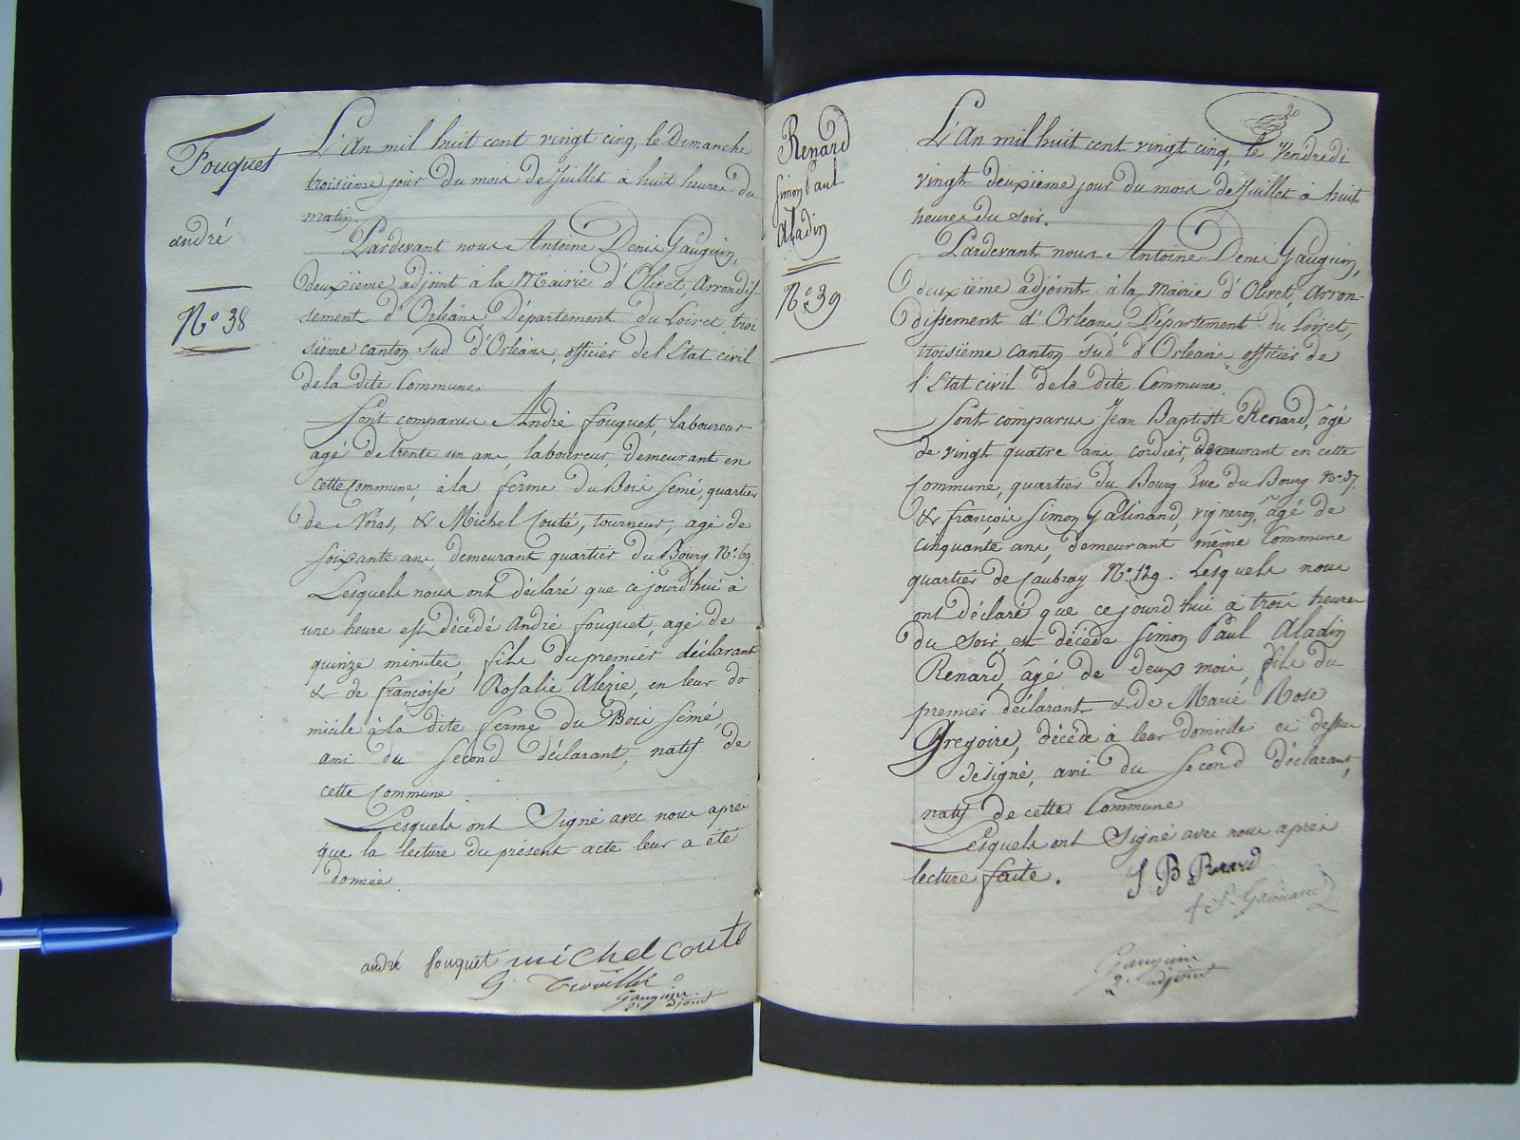 Fouquet
andré
N.o 38
L'An mil huit cent vingt cinq, le Dimanche
troisième jour du mois de Juillet à huit heures du
matin.
Pardevant nous Antoine Denis Gauguin,
deuxième adjoint à la Mairie d'Olivet, Arrondis-
sement d'Orléans Département du Loiret, troi
sième canton sud d'Orléans, officier de l'Etat civil
de la dite Commune.
Sont comparus André fouquet, laboureur
agé de trente un ans, laboureur, demeurant en
cette Commune, à la ferme du Bois semé, quartier
de Noras, & Michel Couté, tourneur, agé de
soixante ans, demeurant quartier du Bourg N.o 69
Lesquels nous ont déclaré que cejourd'hui à
une heure est décédé André fouquet, agé de
quinze minutes, fils du premier déclarant
& de françoise Rosalie Alezie, en leur do
micile à la dite ferme du Bois semé,
ami du second déclarant, natif de
cette Commune.
Lesquels ont Signé avec nous après
que la lecture du présent acte leur a été
donnée.
andré fouquet michel couté
Gauguin
2.e adjoint
Renard
Simon Paul
Aladin
N.o 39
20
L'An mil huit cent vingt cinq, le Vendredi
vingt deuxième jour du mois de Juillet à huit
heures du soir.
Pardevant nous Antoine Denis Gauguin,
deuxième adjoint à la Mairie d'Olivet, Arron-
dissement d'Orléans Département du Loiret,
troisième canton sud d'Orléans officier de
l'Etat civil de la dite Commune
Sont comparus Jean Baptiste Renard, âgé
de vingt quatre ans cordier, demeurant en cette
Commune, quartier du Bourg Rue du Bourg N.o 37.
& françois Simon Galinand, vigneron, âgé de
cinquante ans, demeurant même Commune
quartier de Caubray N.o 129. Lesquels nous
ont déclaré que cejourd'hui à trois heures
du soir, est décédé Simon Paul Aladin
Renard, âgé de deux mois, fils du
premier déclarant & de Marie Rose
Gregoire, décédé à leur domicile ci dessus
désigné, ami du second déclarant,
natif de cette Commune
Lesquels ont Signé avec nous après
lecture faite.
J B Renard
Gauguin
2.e adjoint